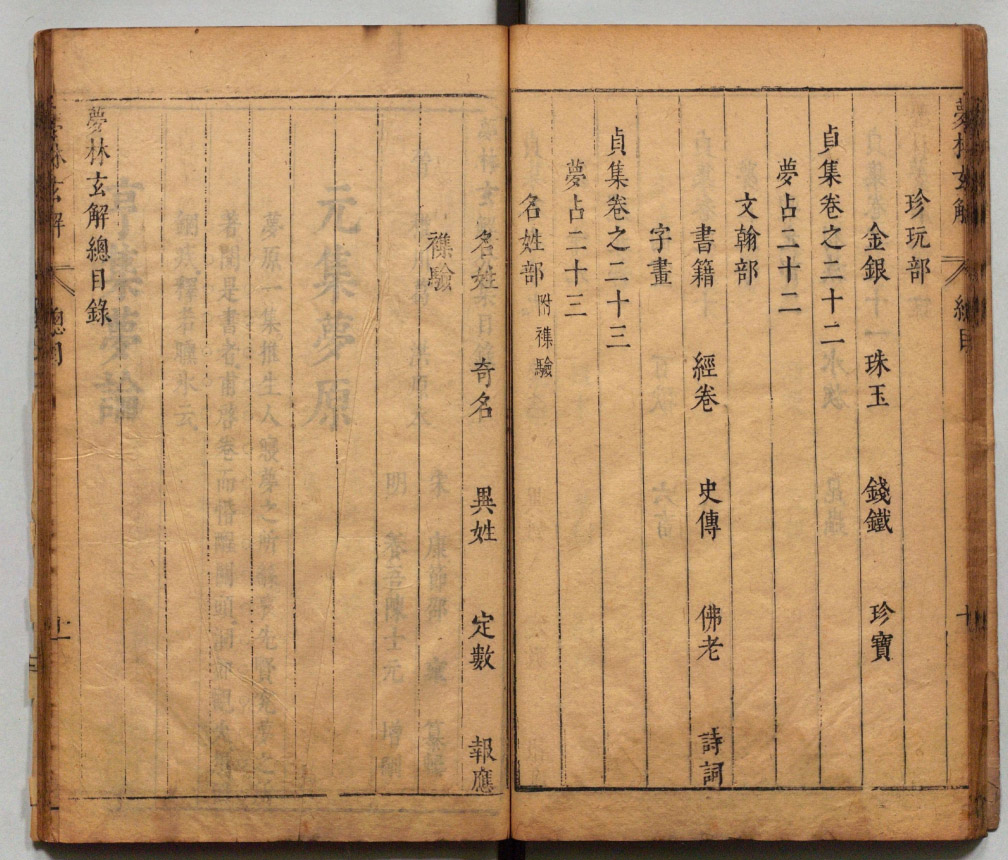 夢林玄解 總目 十
珍玩部
金銀 珠玉 錢鐵 珍寶
貞集卷之二十二
夢占二十二
文翰部
書籍 經卷 史傳 佛老 詩詞
字畫
貞集卷之二十三
夢占二十三
名姓部 附襍驗
名姓 奇名 異姓 定數 報應
襍驗
夢林玄解總目錄